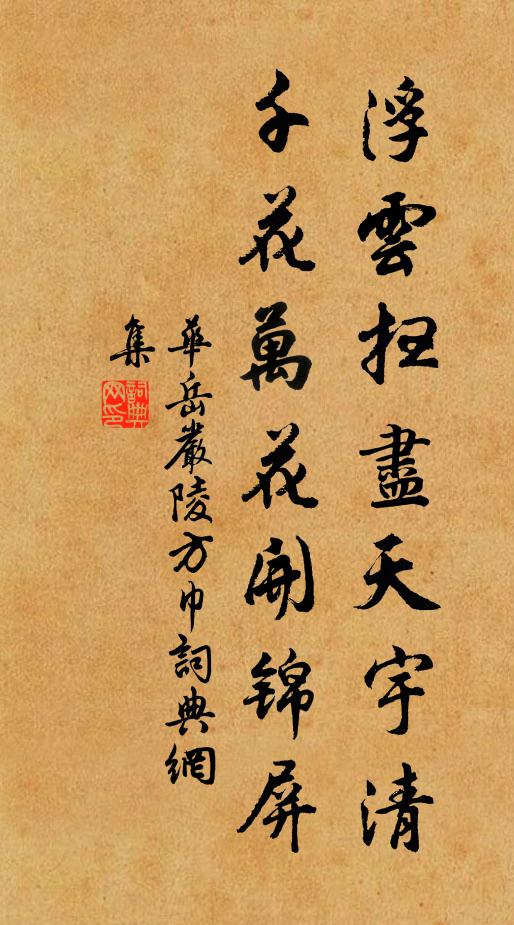 浮雲扫盡天宇清
千花萬花開锦屏
華岳嚴陵方巾詞典網
集
詞典
网印